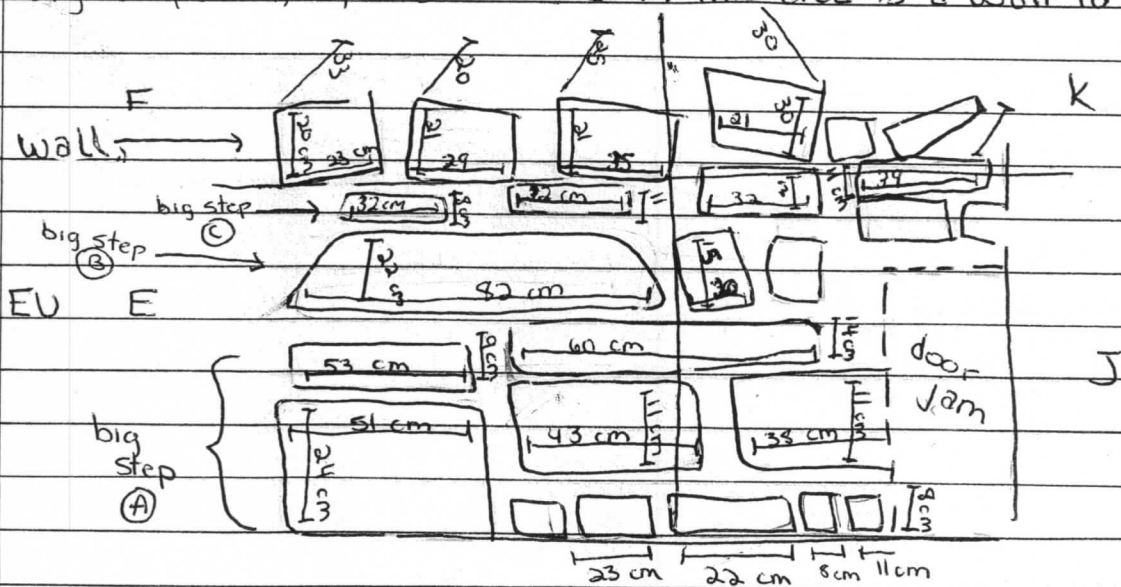 is a wall to
33 20 25 30
F K
Wall 20 cm 23 cm 21 29 21 35 21 30
39
big step C 32 cm 8 cm 32 cm 11 32
big step B 22 cm 82 cm 15 30
EU E
53 cm 9 cm 60 cm 14 cm door J
Jam
big step A 51 cm 24 cm 43 cm 11 cm 38 cm 11 cm
8 cm
23 cm 22 cm 8 cm 11 cm